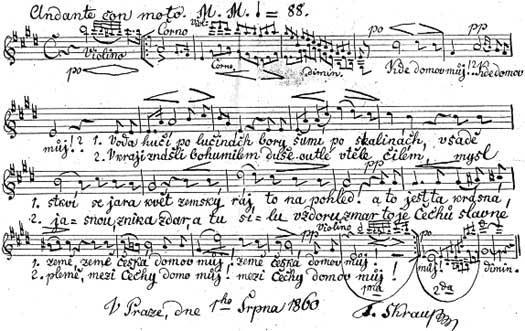 Andante con moto. M. M. ♩ = 88.
Corno Viol:
Violino po po pp
po Corno dimin. Kde domov můj!? Kde domov
můj!? 1. Voda hučí po lučinách bory šumí po skalinách, v sadě
2. V kraji znášli bohumilém duše outlé v těle čilém, mysl
1. stkví se jara květ zemský ráj to na pohled! a to jest ta krásná,
2. ja=snou, znik a zdar, a tu sí=lu vzdoru zmar to je Čechů slavné
Violino pp
1. země, země česká domov můj! země česká, domov můj! můj! dimin.
2. plémě, mezi Čechy domov můj! mezi Čechy domov můj! 1ma 2da
V Praze, dne 1ho Srpna 1860